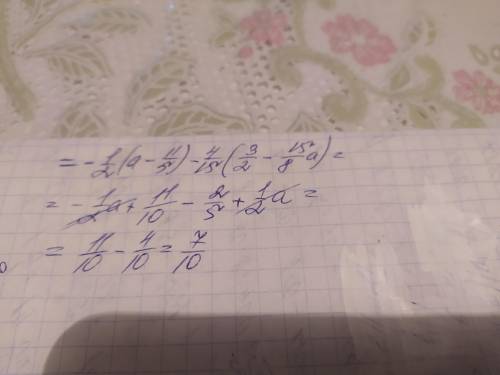 = -1/2(a - 11/5) - 4/15(3/2 - 15/8 a) =
= -1/2 a + 11/10 - 2/5 + 1/2 a =
= 11/10 - 4/10 = 7/10